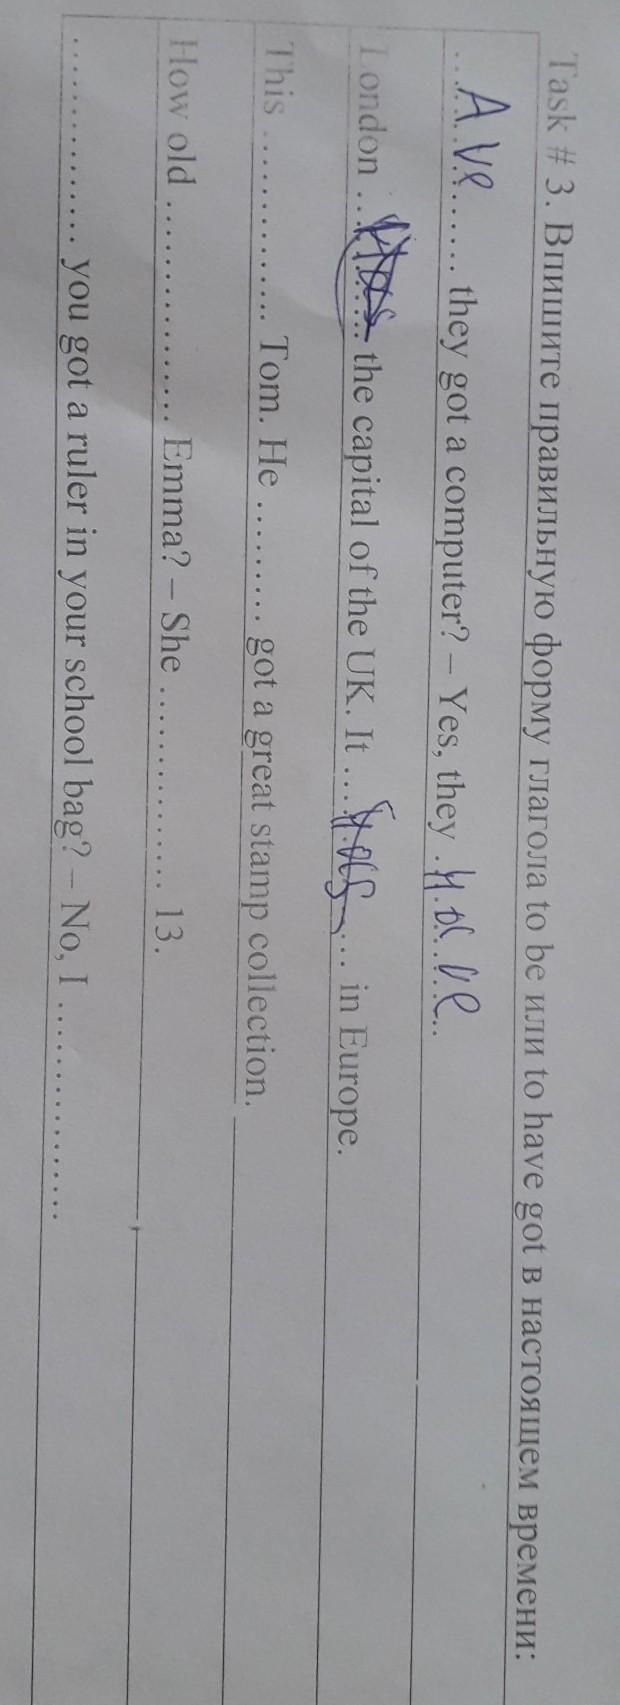 Task # 3. Впишите правильную форму глагола to be или to have got в настоящем времени:
....Are...... they got a computer? – Yes, they .have..
London ............ the capital of the UK. It ....has.... in Europe.
This ............... Tom. He .......... got a great stamp collection.
How old .................. Emma? – She ............... 13.
............... you got a ruler in your school bag? – No, I ..................